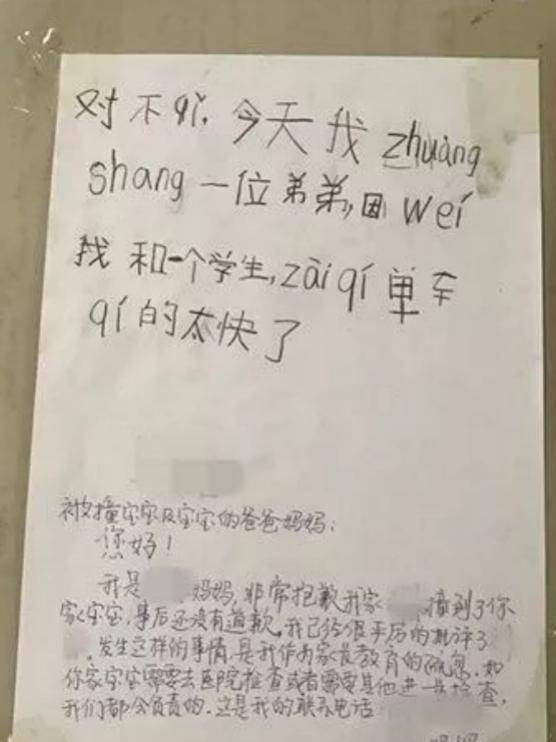 对不qǐ，今天我zhuàng
shang一位弟弟，因wéi
找和一个学生，zài qí单车
qí的太快了
被撞宝宝及宝宝的爸爸妈妈：
您好！
我是 妈妈，非常抱歉我家 撞到了你
家宝宝，事后还没有道歉。我已经很严厉的批评了
。发生这样的事情，是我作为家长教育的疏忽。如
你家宝宝需要去医院检查或者需要其他进一步检查，
我们都会负责的。这是我的联系电话